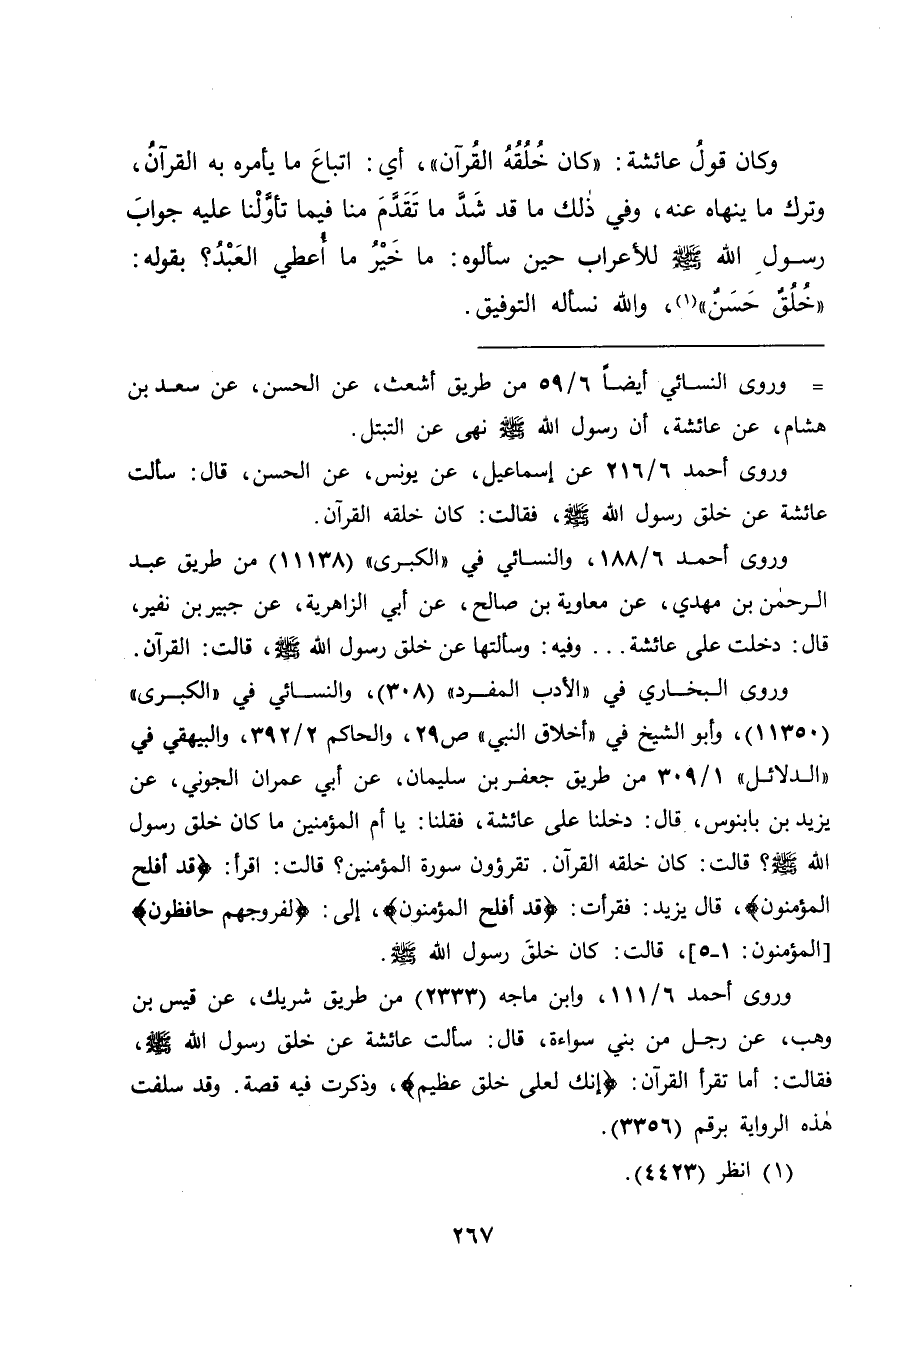 وكان قولُ عائشة: «كان خُلُقُهُ القُرآن»، أي: اتباعَ ما يأمره به القرآنُ،
وترك ما ينهاه عنه، وفي ذٰلك ما قد شَدَّ ما تَقَدَّمَ منا فيما تأوَّلْنا عليه جوابَ
رسول الله ﷺ للأعراب حين سألوه: ما خَيْرُ ما أُعطي العَبْدُ؟ بقوله:
«خُلُقٌ حَسَنٌ»(١)، والله نسأله التوفيق.
= وروى النسائي أيضاً ٥٩/٦ من طريق أشعث، عن الحسن، عن سعد بن
هشام، عن عائشة، أن رسول الله ﷺ نهى عن التبتل.
وروى أحمد ٢١٦/٦ عن إسماعيل، عن يونس، عن الحسن، قال: سألت
عائشة عن خلق رسول الله ﷺ، فقالت: كان خلقه القرآن.
وروى أحمد ١٨٨/٦، والنسائي في «الكبرى» (١١١٣٨) من طريق عبد
الرحمٰن بن مهدي، عن معاوية بن صالح، عن أبي الزاهرية، عن جبير بن نفير،
قال: دخلت على عائشة... وفيه: وسألتها عن خلق رسول الله ﷺ، قالت: القرآن.
وروى البخاري في «الأدب المفرد» (٣٠٨)، والنسائي في «الكبرى»
(١١٣٥٠)، وأبو الشيخ في «أخلاق النبي» ص٢٩، والحاكم ٣٩٢/٢، والبيهقي في
«الدلائل» ٣٠٩/١ من طريق جعفر بن سليمان، عن أبي عمران الجوني، عن
يزيد بن بابنوس، قال: دخلنا على عائشة، فقلنا: يا أم المؤمنين ما كان خلق رسول
الله ﷺ؟ قالت: كان خلقه القرآن. تقرؤون سورة المؤمنين؟ قالت: اقرأ: ﴿قد أفلح
المؤمنون﴾، قال يزيد: فقرأت: ﴿قد أفلح المؤمنون﴾، إلى: ﴿لفروجهم حافظون﴾
[المؤمنون: ١-٥]، قالت: كان خلقَ رسول الله ﷺ.
وروى أحمد ١١١/٦، وابن ماجه (٢٣٣٣) من طريق شريك، عن قيس بن
وهب، عن رجل من بني سواءة، قال: سألت عائشة عن خلق رسول الله ﷺ،
فقالت: أما تقرأ القرآن: ﴿إنك لعلى خلق عظيم﴾، وذكرت فيه قصة. وقد سلفت
هٰذه الرواية برقم (٣٣٥٦).
(١) انظر (٤٤٢٣).
٢٦٧